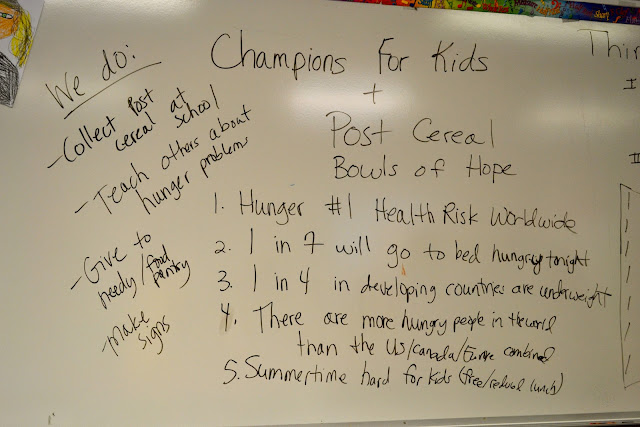 We do:
-Collect Post
cereal at
school
-Teach others about
hunger problems
-Give to
needy/food
pantry
-make
signs
Champions For Kids
+
Post Cereal
Bowls of Hope
1. Hunger #1 Health Risk Worldwide
2. 1 in 7 will go to bed hungry tonight
3. 1 in 4 in developing countries are underweight
4. There are more hungry people in the world
than the US/Canada/Europe combined
5. Summertime hard for kids (free/reduced lunch)
Thin
I
II